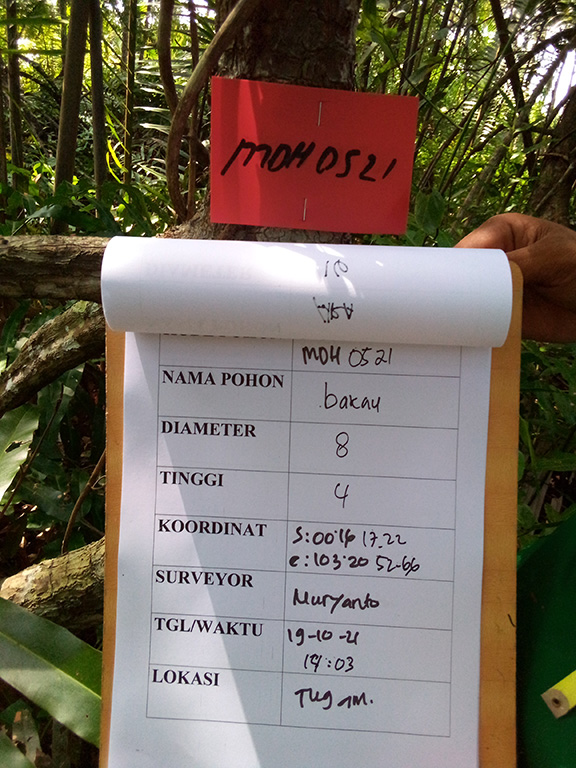 MDH 0521
MDH 0521
NAMA POHON bakau
DIAMETER 8
TINGGI 4
KOORDINAT S:00'16 17.22
e:103'20 52-66
SURVEYOR Muryanto
TGL/WAKTU 19-10-21
14:03
LOKASI